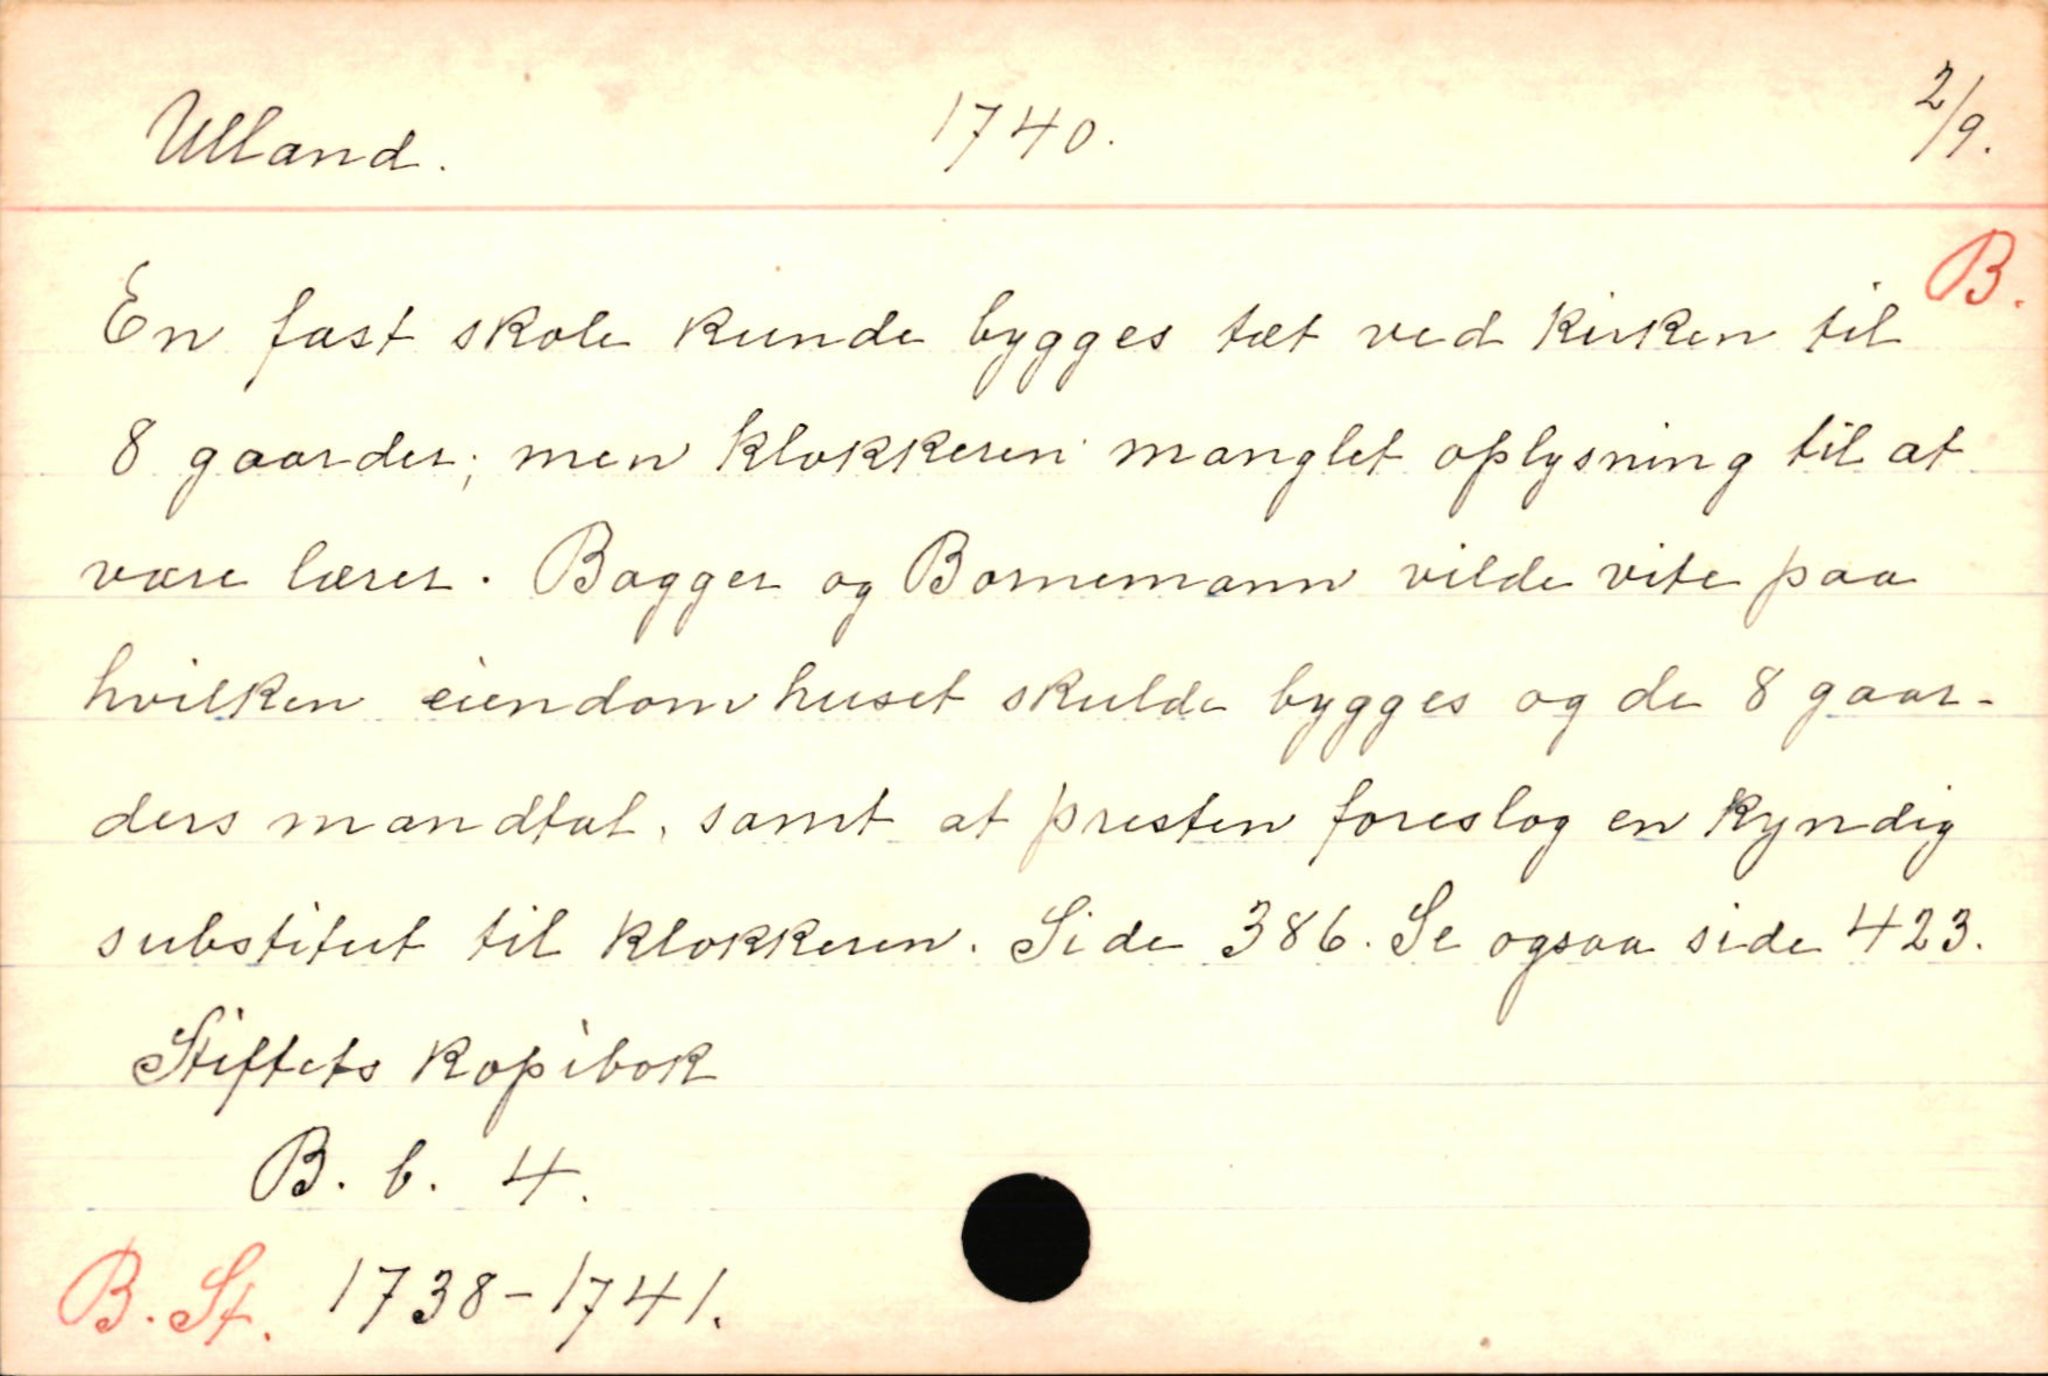 Ulland. 1740. 2/9.
B.
En fast skole kunde bygges tæt ved kirken til
8 gaarder; men klokkeren manglet oplysning til at
være lærer. Bagger og Bornemann vilde vite paa
hvilken eiendom huset skulde bygges og de 8 gaar-
ders mandtal, samt at presten foreslog en kyndig
substitut til klokkeren. Side 386. Se ogsaa side 423.
Stiftets kopibok
B. b. 4.
B. St. 1738-1741.